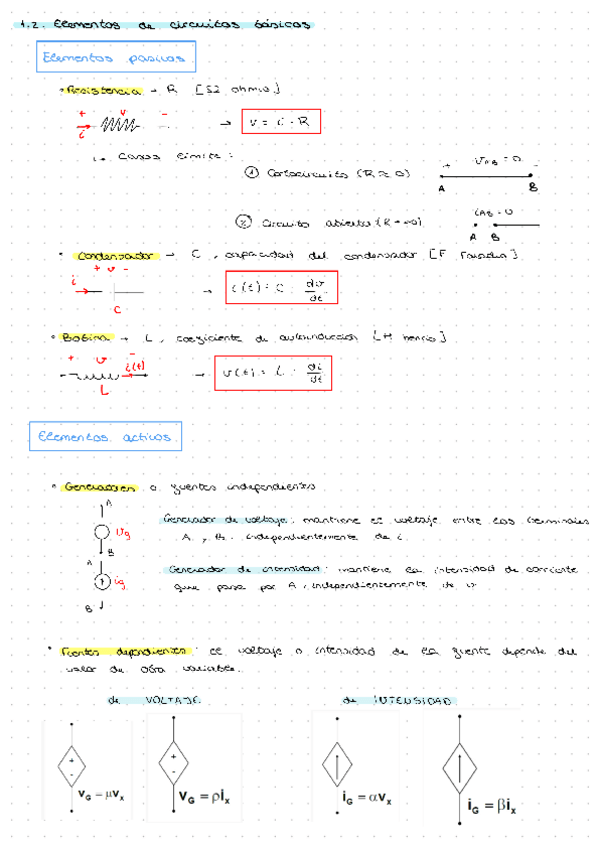 1.2. Elementos de circuitos básicos
Elementos pasivos
• Resistencia → R [Ω ohmio]
+ v -
i
→ v = i · R
↳ Casos límite:
① Cortocircuito (R ≈ 0)
+ VAB = 0 -
A B
② Circuito abierto (R → ∞)
iAB = 0
A B
• Condensador → C, capacidad del condensador [F Faradio]
+ v -
i
→ i(t) = C · dv/dt
C
• Bobina → L, coeficiente de autoinducción [H henrio]
+ v -
i(t)
→ v(t) = L · di/dt
L
Elementos activos
• Generadores o fuentes independientes
A
vg
B
Generador de voltaje: mantiene el voltaje entre los terminales
A, B. independientemente de i
A
ig
B
Generador de intensidad: mantiene la intensidad de corriente
que pasa por A, independientemente de v
• Fuentes dependientes: el voltaje o intensidad de la fuente depende del
valor de otra variable.
de VOLTAJE
de INTENSIDAD
+
-
vG = μvx
+
-
vG = ρix
iG = αvx
iG = βix